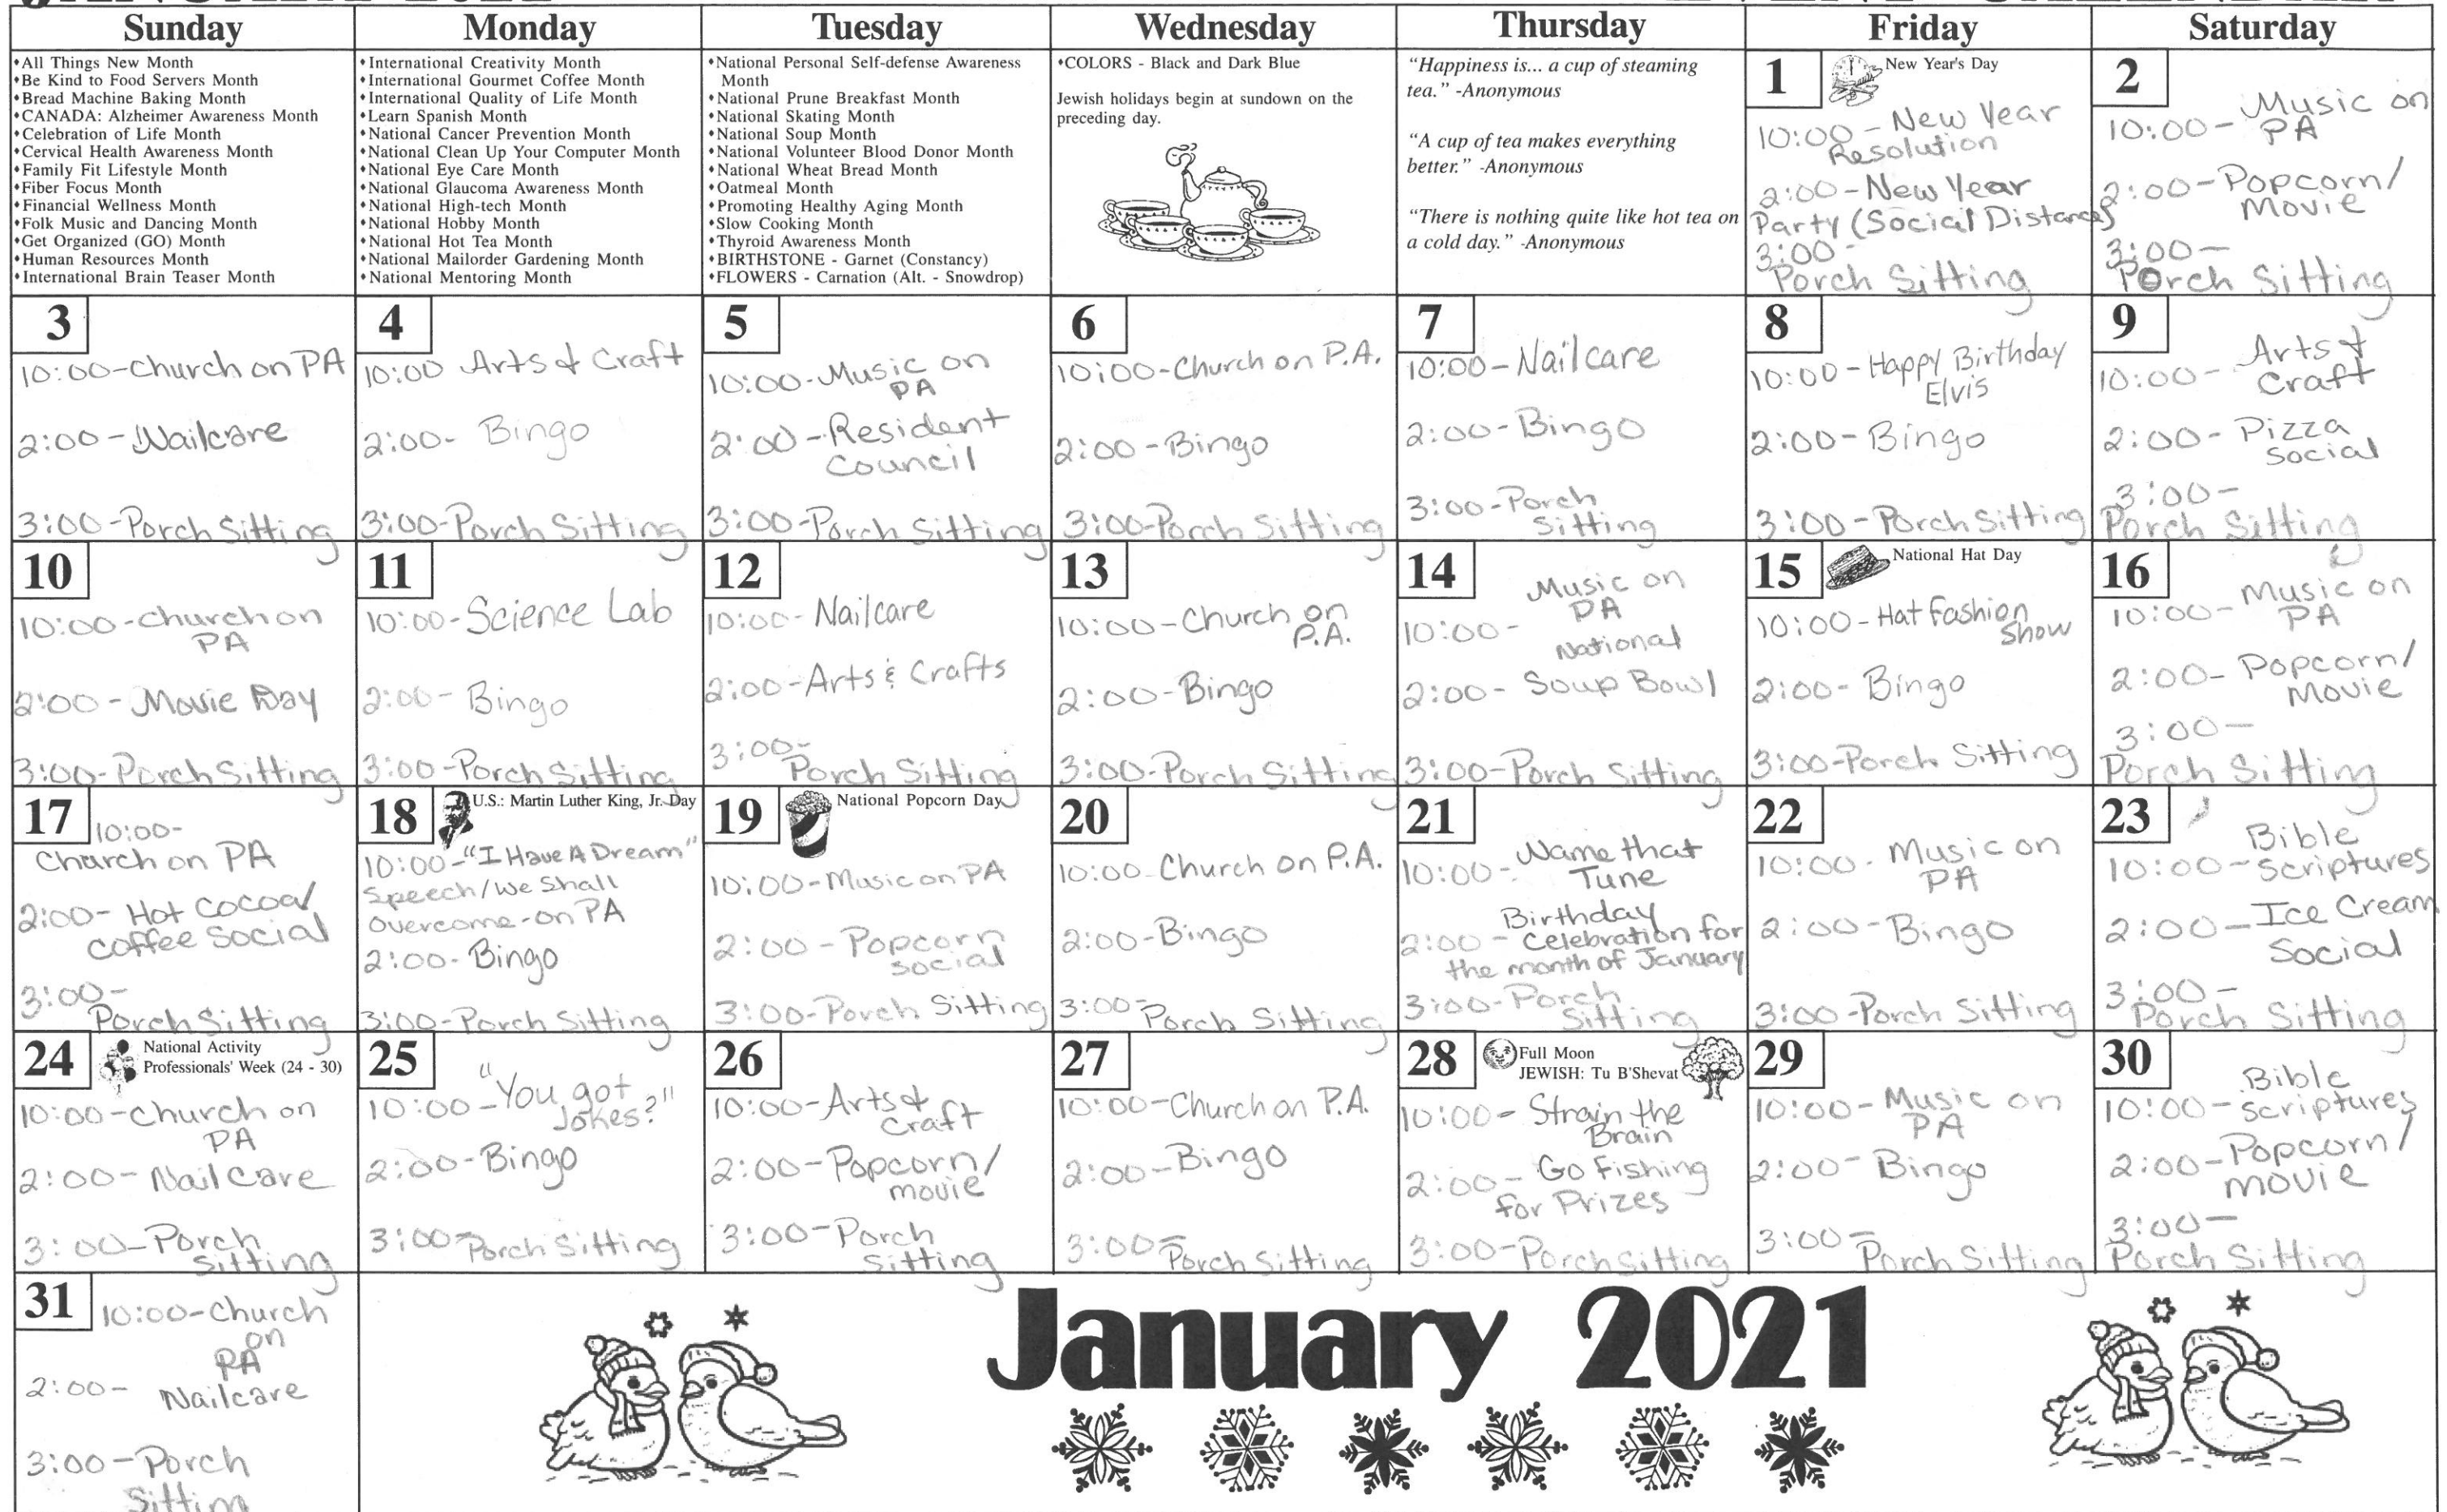 Sunday
Monday
Tuesday
Wednesday
Thursday
Friday
Saturday
♦All Things New Month
♦Be Kind to Food Servers Month
♦Bread Machine Baking Month
♦CANADA: Alzheimer Awareness Month
♦Celebration of Life Month
♦Cervical Health Awareness Month
♦Family Fit Lifestyle Month
♦Fiber Focus Month
♦Financial Wellness Month
♦Folk Music and Dancing Month
♦Get Organized (GO) Month
♦Human Resources Month
♦International Brain Teaser Month
♦International Creativity Month
♦International Gourmet Coffee Month
♦International Quality of Life Month
♦Learn Spanish Month
♦National Cancer Prevention Month
♦National Clean Up Your Computer Month
♦National Eye Care Month
♦National Glaucoma Awareness Month
♦National High-tech Month
♦National Hobby Month
♦National Hot Tea Month
♦National Mailorder Gardening Month
♦National Mentoring Month
♦National Personal Self-defense Awareness
Month
♦National Prune Breakfast Month
♦National Skating Month
♦National Soup Month
♦National Volunteer Blood Donor Month
♦National Wheat Bread Month
♦Oatmeal Month
♦Promoting Healthy Aging Month
♦Slow Cooking Month
♦Thyroid Awareness Month
♦BIRTHSTONE - Garnet (Constancy)
♦FLOWERS - Carnation (Alt. - Snowdrop)
♦COLORS - Black and Dark Blue
Jewish holidays begin at sundown on the
preceding day.
"Happiness is... a cup of steaming
tea." -Anonymous
"A cup of tea makes everything
better." -Anonymous
"There is nothing quite like hot tea on
a cold day." -Anonymous
1
New Year's Day
10:00 - New Year
Resolution
2:00 - New Year
Party (Social Distance)
3:00 -
Porch Sitting
2
10:00 - Music on
PA
2:00 - Popcorn/
Movie
3:00 -
Porch Sitting
3
10:00 - Church on PA
2:00 - Nailcare
3:00 - Porch Sitting
4
10:00 Arts & Craft
2:00 - Bingo
3:00 - Porch Sitting
5
10:00 - Music on
PA
2:00 - Resident
Council
3:00 - Porch Sitting
6
10:00 - Church on P.A.
2:00 - Bingo
3:00 - Porch Sitting
7
10:00 - Nailcare
2:00 - Bingo
3:00 - Porch
Sitting
8
10:00 - Happy Birthday
Elvis
2:00 - Bingo
3:00 - Porch Sitting
9
10:00 - Arts &
Craft
2:00 - Pizza
Social
3:00 -
Porch Sitting
10
10:00 - Church on
PA
2:00 - Movie Day
3:00 - Porch Sitting
11
10:00 - Science Lab
2:00 - Bingo
3:00 - Porch Sitting
12
10:00 - Nailcare
2:00 - Arts & Crafts
3:00 -
Porch Sitting
13
10:00 - Church on
P.A.
2:00 - Bingo
3:00 - Porch Sitting
14
10:00 - Music on
PA
National
2:00 - Soup Bowl
3:00 - Porch Sitting
15
National Hat Day
10:00 - Hat Fashion
Show
2:00 - Bingo
3:00 - Porch Sitting
16
10:00 - Music on
PA
2:00 - Popcorn/
Movie
3:00 -
Porch Sitting
17
10:00 -
Church on PA
2:00 - Hot Cocoa/
Coffee Social
3:00 -
Porch Sitting
18
U.S.: Martin Luther King, Jr. Day
10:00 - "I Have A Dream"
Speech/We Shall
Overcome - on PA
2:00 - Bingo
3:00 - Porch Sitting
19
National Popcorn Day
10:00 - Music on PA
2:00 - Popcorn
social
3:00 - Porch Sitting
20
10:00 - Church on P.A.
2:00 - Bingo
3:00 - Porch Sitting
21
10:00 - Name that
Tune
Birthday
2:00 - Celebration for
the month of January
3:00 - Porch
Sitting
22
10:00 - Music on
PA
2:00 - Bingo
3:00 - Porch Sitting
23
Bible
10:00 - Scriptures
2:00 - Ice Cream
Social
3:00 -
Porch Sitting
24
National Activity
Professionals' Week (24 - 30)
10:00 - Church on
PA
2:00 - Nail Care
3:00 - Porch
Sitting
25
10:00 - "You got
Jokes?"
2:00 - Bingo
3:00 - Porch Sitting
26
10:00 - Arts &
Craft
2:00 - Popcorn/
movie
3:00 - Porch
Sitting
27
10:00 - Church on P.A.
2:00 - Bingo
3:00 - Porch Sitting
28
Full Moon
JEWISH: Tu B'Shevat
10:00 - Strain the
Brain
2:00 - Go Fishing
for Prizes
3:00 - Porch Sitting
29
10:00 - Music on
PA
2:00 - Bingo
3:00 - Porch Sitting
30
Bible
10:00 - Scriptures
2:00 - Popcorn/
movie
3:00 -
Porch Sitting
31
10:00 - Church
on
PA
2:00 - Nailcare
3:00 - Porch
Sitting
January 2021